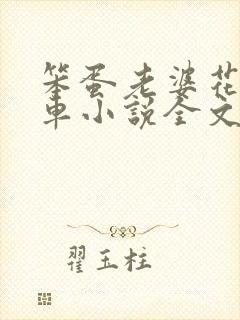 笨蛋老婆花
车小说全文
翟玉柱